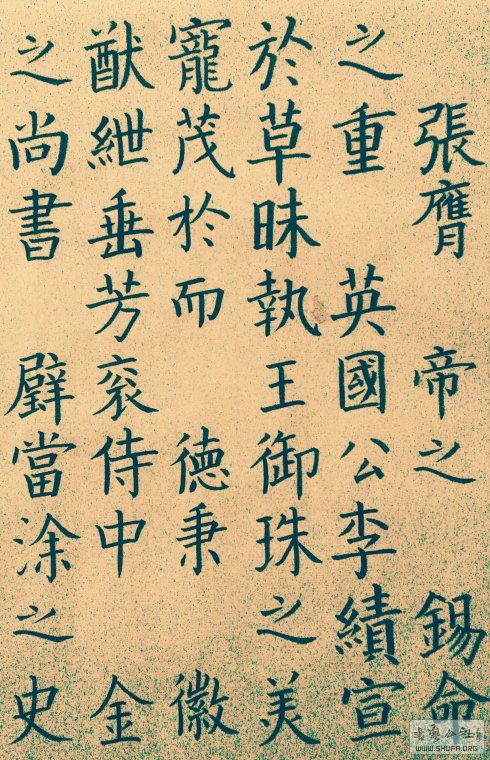 張膺 帝之 錫命
之重 英國公李績宣
於草昧執王御珠之美
寵茂於而 德秉 徽
猷紲垂芳衮侍中 金
之尚書 當涂之史
WWW.SHUFA.ORG